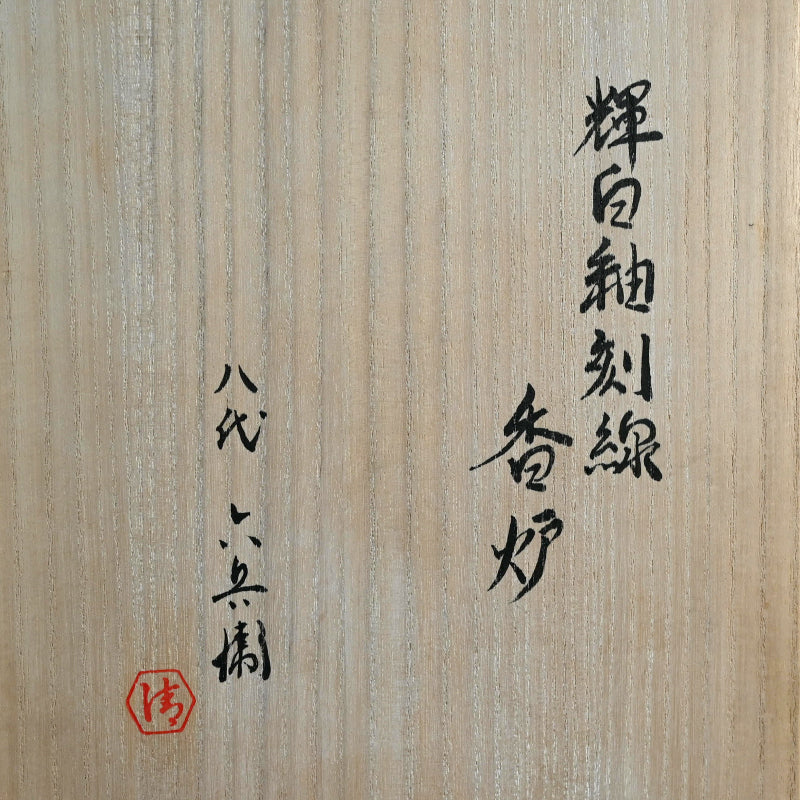 輝白釉刻線
香炉
八代 六兵衞
清